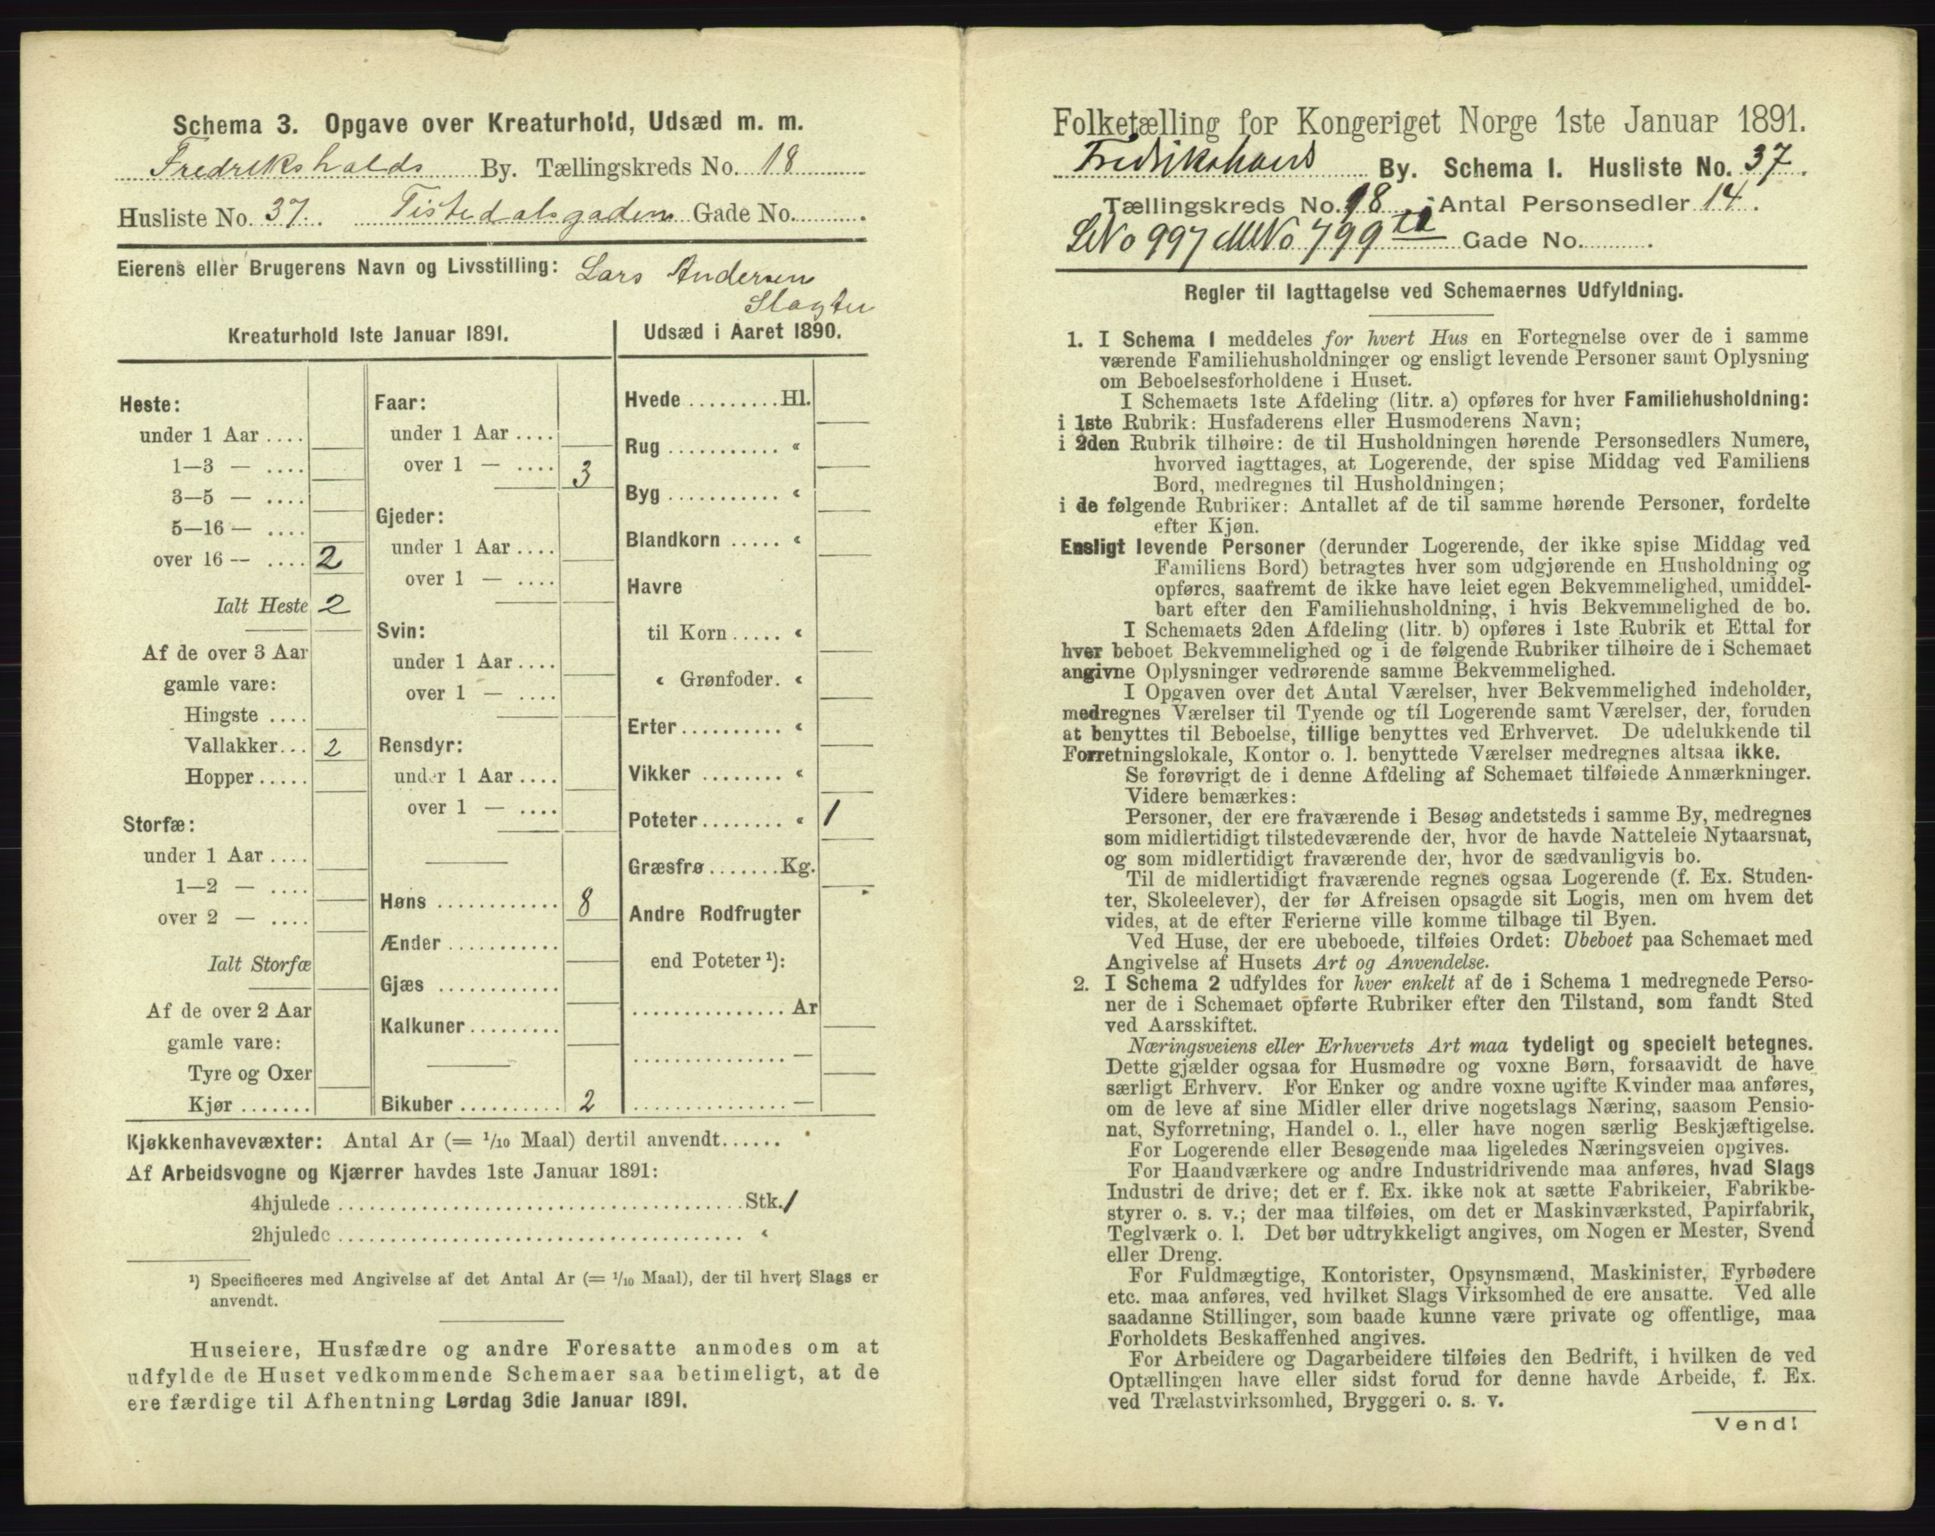 Schema 3. Opgave over Kreaturhold, Udsæd m. m.
Fredrikshalds By. Tællingskreds No. 18
Husliste No. 37. Tistedalsgaden Gade No.
Eierens eller Brugerens Navn og Livsstilling: Lars Andersen
Slagter
Kreaturhold 1ste Januar 1891.
Heste:
under 1 Aar ....
1—3 — ....
3—5 — ....
5—16 — ....
over 16 — .... 2
Ialt Heste 2
Af de over 3 Aar
gamle vare:
Hingste ....
Vallakker... 2
Hopper.....
Storfæ:
under 1 Aar ....
1—2 — ....
over 2 — ....
Ialt Storfæ
Af de over 2 Aar
gamle vare:
Tyre og Oxer
Kjør.......
Faar:
under 1 Aar ....
over 1 — .... 3
Gjeder:
under 1 Aar ....
over 1 — ....
Svin:
under 1 Aar ....
over 1 — ....
Rensdyr:
under 1 Aar ....
over 1 — ....
Høns ............ 8
Ænder ...........
Gjæs ............
Kalkuner.........
Bikuber.......... 2
Udsæd i Aaret 1890.
Hvede .........Hl.
Rug ........... «
Byg ........... «
Blandkorn ..... «
Havre
til Korn ..... «
« Grønfoder. «
Erter .......... «
Vikker ........ «
Poteter........ « 1
Græsfrø.......Kg.
Andre Rodfrugter
end Poteter ¹):
............... Ar
............... —
............... —
Kjøkkenhavevæxter: Antal Ar (= 1/10 Maal) dertil anvendt......
Af Arbeidsvogne og Kjærrer havdes 1ste Januar 1891:
4hjulede ....................................... Stk. 1
2hjulede ....................................... «
¹) Specificeres med Angivelse af det Antal Ar (= 1/10 Maal), der til hvert Slags er
anvendt.
Huseiere, Husfædre og andre Foresatte anmodes om at
udfylde de Huset vedkommende Schemaer saa betimeligt, at de
ere færdige til Afhentning Lørdag 3die Januar 1891.
Folketælling for Kongeriget Norge 1ste Januar 1891.
Fredrikshalds By. Schema 1. Husliste No. 37.
Tællingskreds No. 18. Antal Personsedler 14.
No 997 MNo 799 Gade No. .
Regler til Iagttagelse ved Schemaernes Udfyldning.
1. I Schema 1 meddeles for hvert Hus en Fortegnelse over de i samme
værende Familiehusholdninger og ensligt levende Personer samt Oplysning
om Beboelsesforholdene i Huset.
I Schemaets 1ste Afdeling (litr. a) opføres for hver Familiehusholdning:
i 1ste Rubrik: Husfaderens eller Husmoderens Navn;
i 2den Rubrik tilhøire: de til Husholdningen hørende Personsedlers Numere,
hvorved iagttages, at Logerende, der spise Middag ved Familiens
Bord, medregnes til Husholdningen;
i de følgende Rubriker: Antallet af de til samme hørende Personer, fordelte
efter Kjøn.
Ensligt levende Personer (derunder Logerende, der ikke spise Middag ved
Familiens Bord) betragtes hver som udgjørende en Husholdning og
opføres, saafremt de ikke have leiet egen Bekvemmelighed, umiddel-
bart efter den Familiehusholdning, i hvis Bekvemmelighed de bo.
I Schemaets 2den Afdeling (litr. b) opføres i 1ste Rubrik et Ettal for
hver beboet Bekvemmelighed og i de følgende Rubriker tilhøire de i Schemaet
angivne Oplysninger vedrørende samme Bekvemmelighed.
I Opgaven over det Antal Værelser, hver Bekvemmelighed indeholder,
medregnes Værelser til Tyende og til Logerende samt Værelser, der, foruden
at benyttes til Beboelse, tillige benyttes ved Erhvervet. De udelukkende til
Forretningslokale, Kontor o. l. benyttede Værelser medregnes altsaa ikke.
Se forøvrigt de i denne Afdeling af Schemaet tilføiede Anmærkninger.
Videre bemærkes:
Personer, der ere fraværende i Besøg andetsteds i samme By, medregnes
som midlertidigt tilstedeværende der, hvor de havde Natteleie Nytaarsnat,
og som midlertidigt fraværende der, hvor de sædvanligvis bo.
Til de midlertidigt fraværende regnes ogsaa Logerende (f. Ex. Studen-
ter, Skoleelever), der før Afreisen opsagde sit Logis, men om hvem det
vides, at de efter Ferierne ville komme tilbage til Byen.
Ved Huse, der ere ubeboede, tilføies Ordet: Ubeboet paa Schemaet med
Angivelse af Husets Art og Anvendelse.
2. I Schema 2 udfyldes for hver enkelt af de i Schema 1 medregnede Perso-
ner de i Schemaet opførte Rubriker efter den Tilstand, som fandt Sted
ved Aarsskiftet.
Næringsveiens eller Erhvervets Art maa tydeligt og specielt betegnes.
Dette gjælder ogsaa for Husmødre og voxne Børn, forsaavidt de have
særligt Erhverv. For Enker og andre voxne ugifte Kvinder maa anføres,
om de leve af sine Midler eller drive nogetslags Næring, saasom Pensio-
nat, Syforretning, Handel o. l., eller have nogen særlig Beskjæftigelse.
For Logerende eller Besøgende maa ligeledes Næringsveien opgives.
For Haandværkere og andre Industridrivende maa anføres, hvad Slags
Industri de drive; det er f. Ex. ikke nok at sætte Fabrikeier, Fabrikbe-
styrer o. s. v.; der maa tilføies, om det er Maskinværksted, Papirfabrik,
Teglværk o. l. Det bør udtrykkeligt angives, om Nogen er Mester, Svend
eller Dreng.
For Fuldmægtige, Kontorister, Opsynsmænd, Maskinister, Fyrbødere
etc. maa anføres, ved hvilket Slags Virksomhed de ere ansatte. Ved alle
saadanne Stillinger, som baade kunne være private og offentlige, maa
Forholdets Beskaffenhed angives.
For Arbeidere og Dagarbeidere tilføies den Bedrift, i hvilken de ved
Optællingen have eller sidst forud for denne havde Arbeide, f. Ex.
ved Trælastvirksomhed, Bryggeri o. s. v.
Vend!